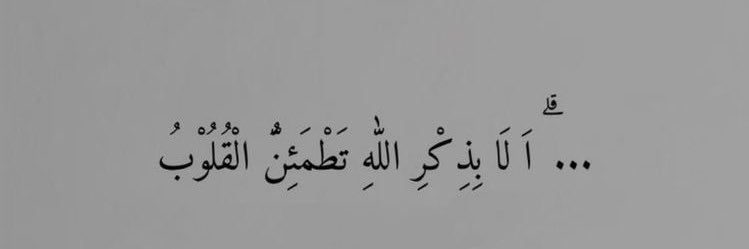 ... ۗ اَ لَا بِذِكْرِ اللّٰهِ تَطْمَئِنُّ الْقُلُوْبُ